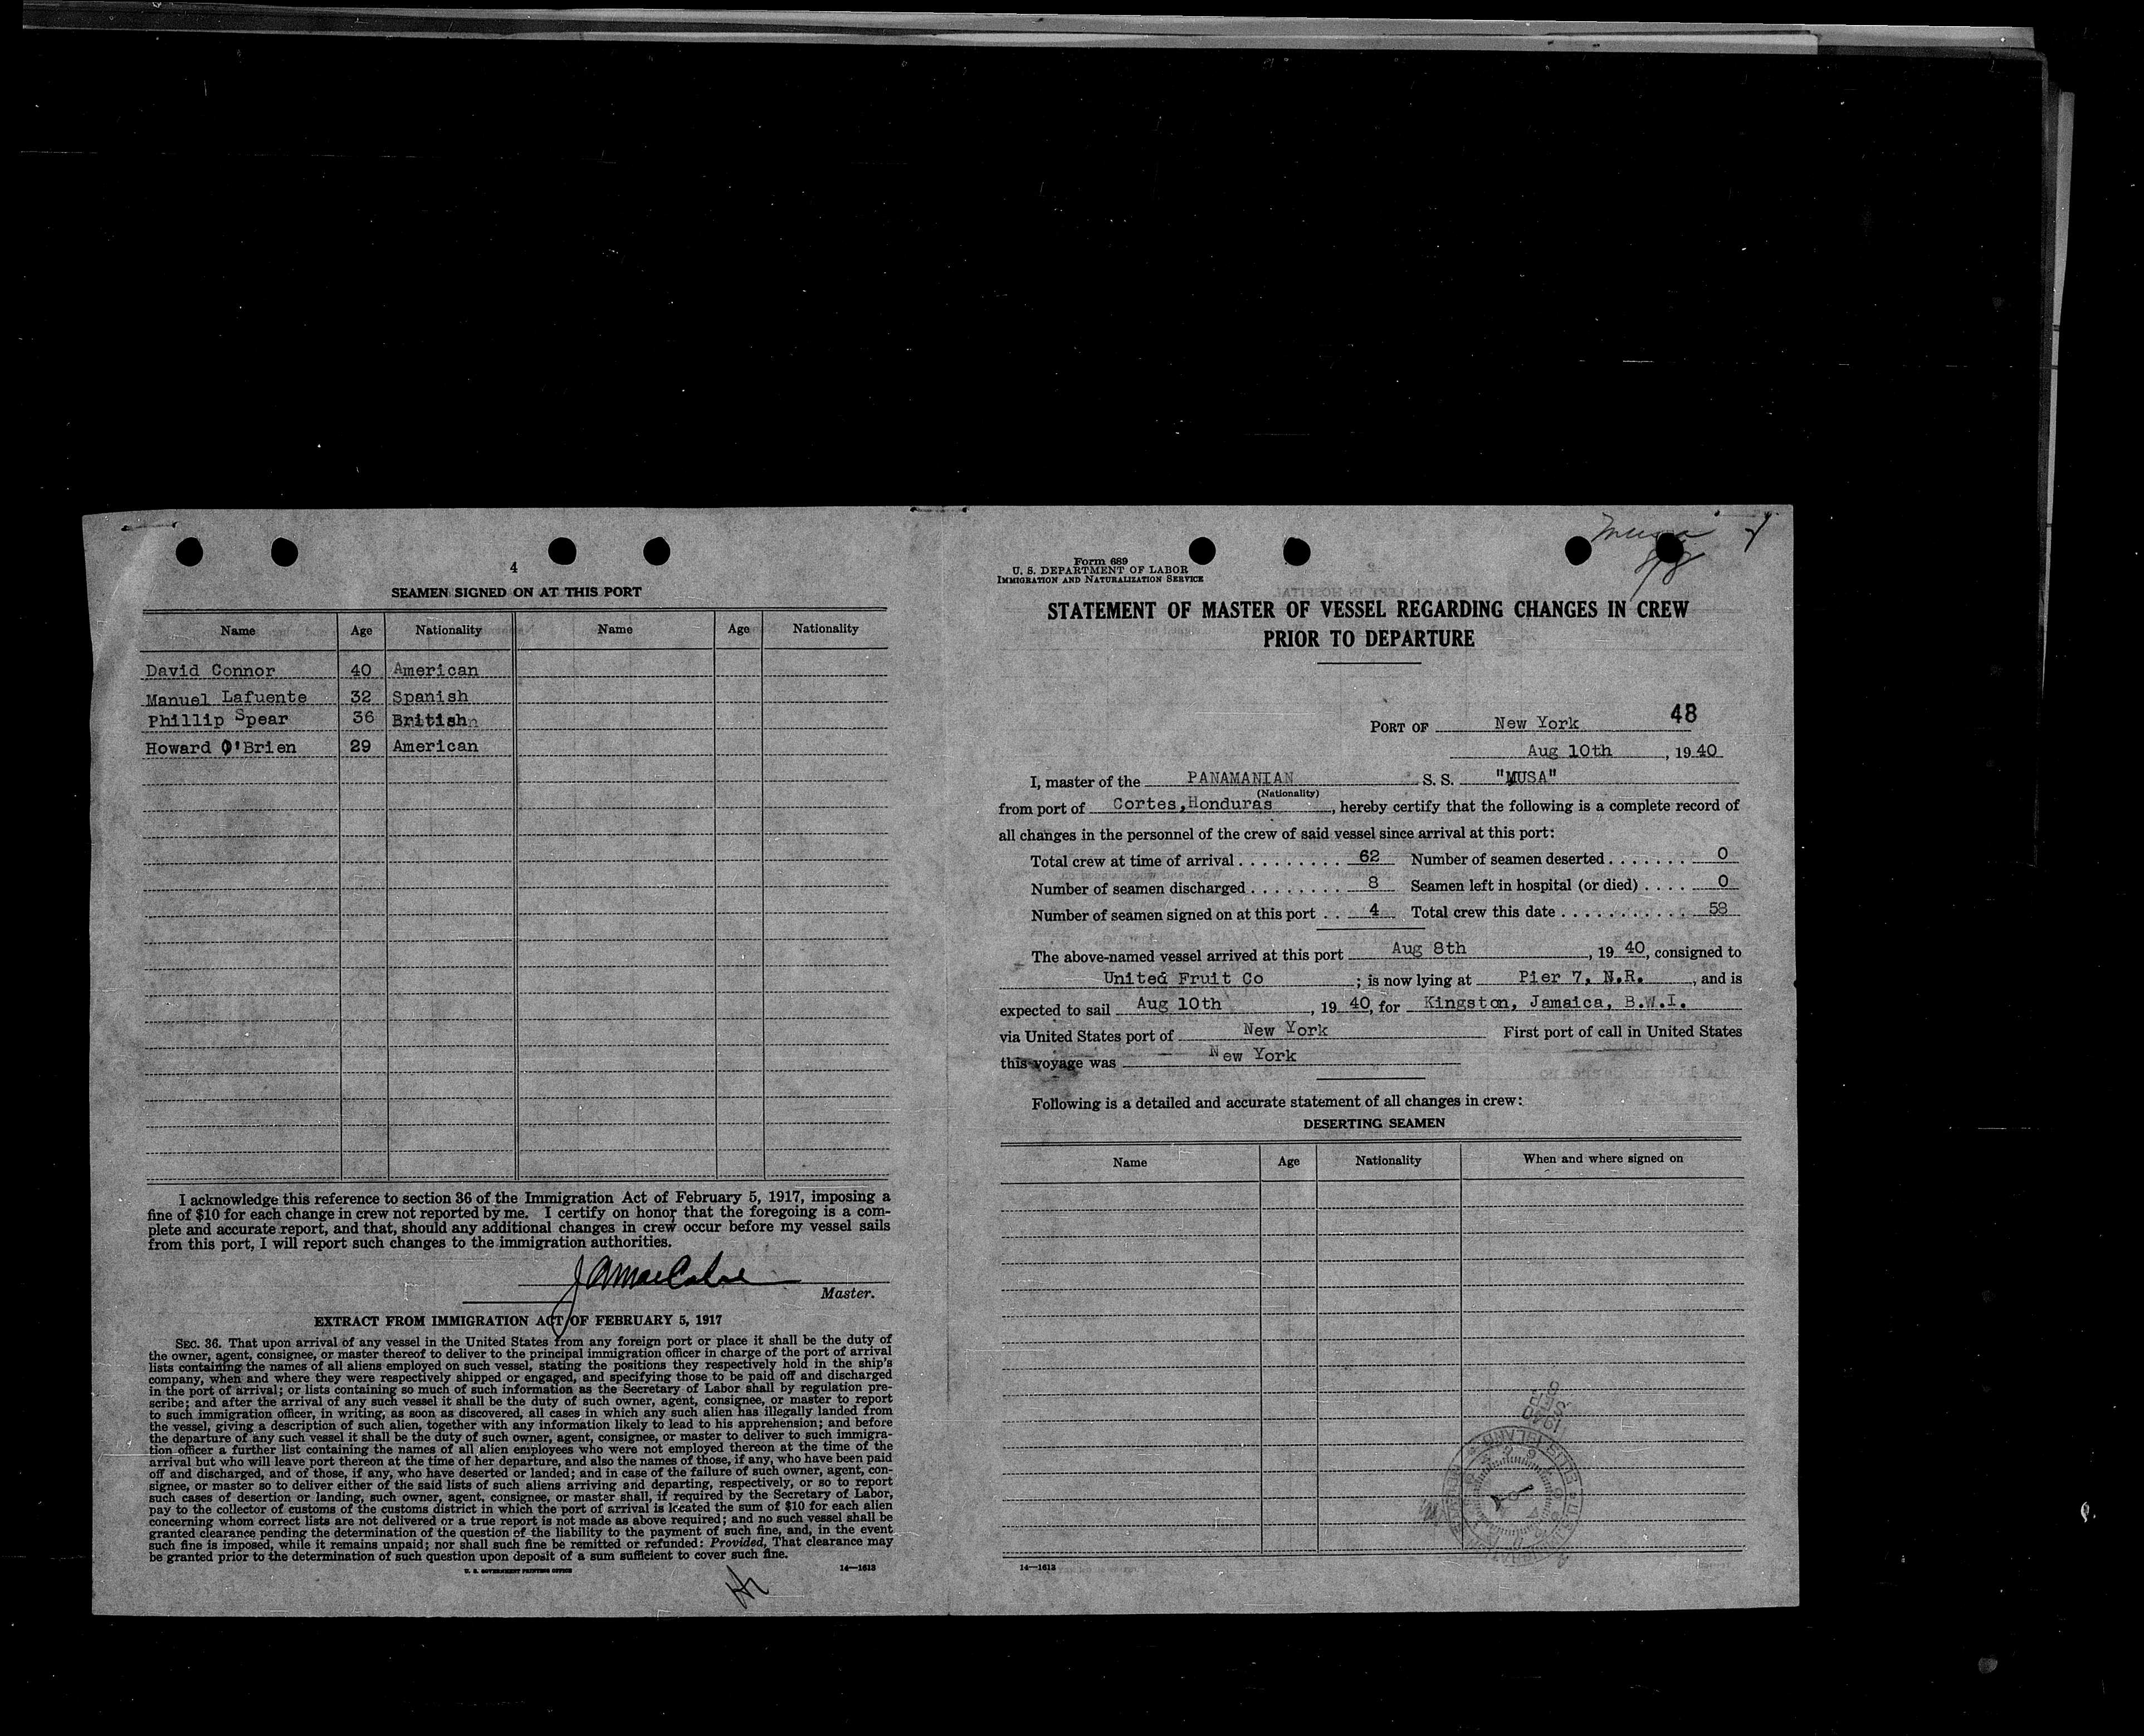 4
SEAMEN SIGNED ON AT THIS PORT
Name Age Nationality Name Age Nationality
David Connor 40 American
Manuel Lafuente 32 Spanish
Phillip Spear 36 British
Howard O'Brien 29 American
I acknowledge this reference to section 36 of the Immigration Act of February 5, 1917, imposing a
fine of $10 for each change in crew not reported by me. I certify on honor that the foregoing is a com-
plete and accurate report, and that, should any additional changes in crew occur before my vessel sails
from this port, I will report such changes to the immigration authorities.
Master.
EXTRACT FROM IMMIGRATION ACT OF FEBRUARY 5, 1917
SEC. 36. That upon arrival of any vessel in the United States from any foreign port or place it shall be the duty of
the owner, agent, consignee, or master thereof to deliver to the principal immigration officer in charge of the port of arrival
lists containing the names of all aliens employed on such vessel, stating the positions they respectively hold in the ship's
company, when and where they were respectively shipped or engaged, and specifying those to be paid off and discharged
in the port of arrival; or lists containing so much of such information as the Secretary of Labor shall by regulation pre-
scribe; and after the arrival of any such vessel it shall be the duty of such owner, agent, consignee, or master to report
to such immigration officer, in writing, as soon as discovered, all cases in which any such alien has illegally landed from
the vessel, giving a description of such alien, together with any information likely to lead to his apprehension; and before
the departure of any such vessel it shall be the duty of such owner, agent, consignee, or master to deliver to such immigra-
tion officer a further list containing the names of all alien employees who were not employed thereon at the time of the
arrival but who will leave port thereon at the time of her departure, and also the names of those, if any, who have been paid
off and discharged, and of those, if any, who have deserted or landed; and in case of the failure of such owner, agent, con-
signee, or master so to deliver either of the said lists of such aliens arriving and departing, respectively, or so to report
such cases of desertion or landing, such owner, agent, consignee, or master shall, if required by the Secretary of Labor,
pay to the collector of customs of the customs district in which the port of arrival is located the sum of $10 for each alien
concerning whom correct lists are not delivered or a true report is not made as above required; and no such vessel shall be
granted clearance pending the determination of the question of the liability to the payment of such fine, and, in the event
such fine is imposed, while it remains unpaid; nor shall such fine be remitted or refunded: Provided, That clearance may
be granted prior to the determination of such question upon deposit of a sum sufficient to cover such fine.
U. S. GOVERNMENT PRINTING OFFICE 14—1613
Musa
Form 689
U. S. DEPARTMENT OF LABOR
IMMIGRATION AND NATURALIZATION SERVICE
STATEMENT OF MASTER OF VESSEL REGARDING CHANGES IN CREW
PRIOR TO DEPARTURE
48
PORT OF New York
Aug 10th, 1940
I, master of the PANAMANIAN S. S. "MUSA"
(Nationality)
from port of Cortes,Honduras, hereby certify that the following is a complete record of
all changes in the personnel of the crew of said vessel since arrival at this port:
Total crew at time of arrival . . . . . . . . . 62 Number of seamen deserted . . . . . . . 0
Number of seamen discharged . . . . . . . . 8 Seamen left in hospital (or died) . . . . 0
Number of seamen signed on at this port . . 4 Total crew this date . . . . . . . . . . . 58
The above-named vessel arrived at this port Aug 8th, 1940, consigned to
United Fruit Co; is now lying at Pier 7, N.R., and is
expected to sail Aug 10th, 1940, for Kingston, Jamaica, B.W.I.
via United States port of New York First port of call in United States
this voyage was New York
Following is a detailed and accurate statement of all changes in crew:
DESERTING SEAMEN
Name Age Nationality When and where signed on
1940
14—1613